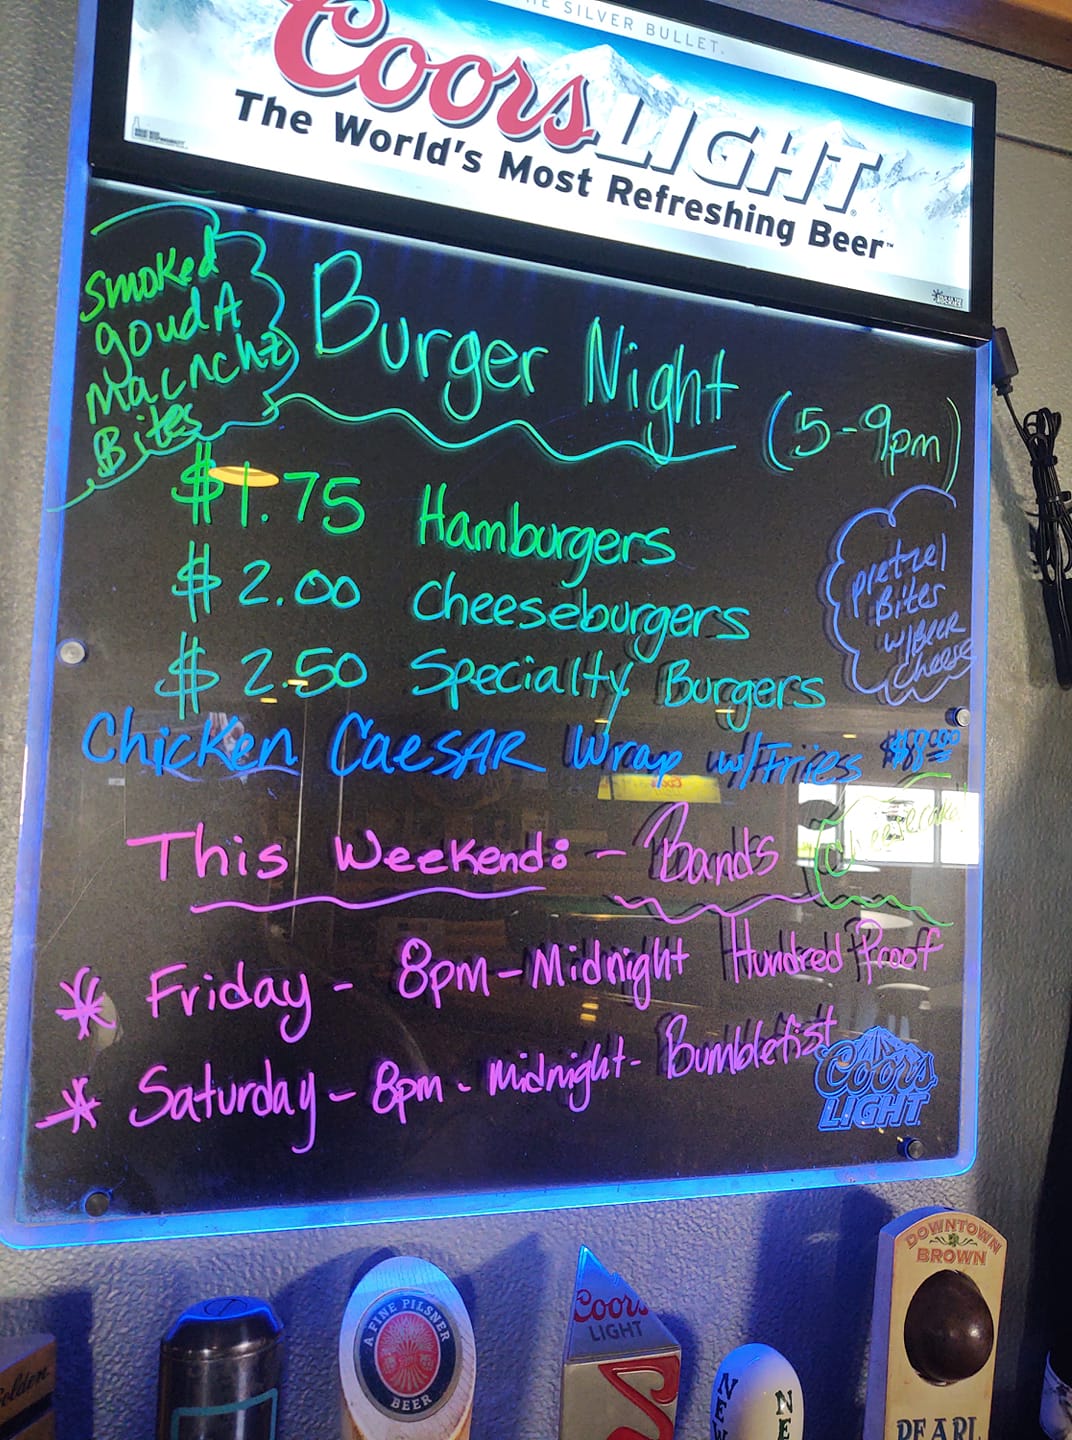 THE SILVER BULLET.
Coors LIGHT
The World's Most Refreshing Beer™
Smoked
goudA
Macnchz
Bites
Burger Night (5-9pm)
$1.75 Hamburgers
$2.00 Cheeseburgers
$2.50 Specialty Burgers
pretzel
Bites
w/BEER
cheese
Chicken CAESAR Wrap w/Fries
cheesecake
This Weekend: - Bands
Friday - 8pm - Midnight Hundred Proof
Saturday - 8pm - midnight - Bumblefist
Coors
LIGHT
Golden
A FINE PILSNER
BEER
Coors
LIGHT
DOWNTOWN
BROWN
PEARL